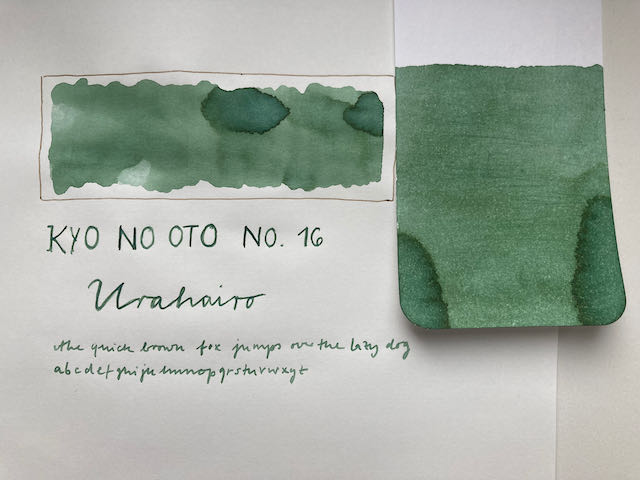 KYO NO OTO NO. 16
Urahairo
the quick brown fox jumps over the lazy dog
abcdefghijklmnopqrstuvwxyz